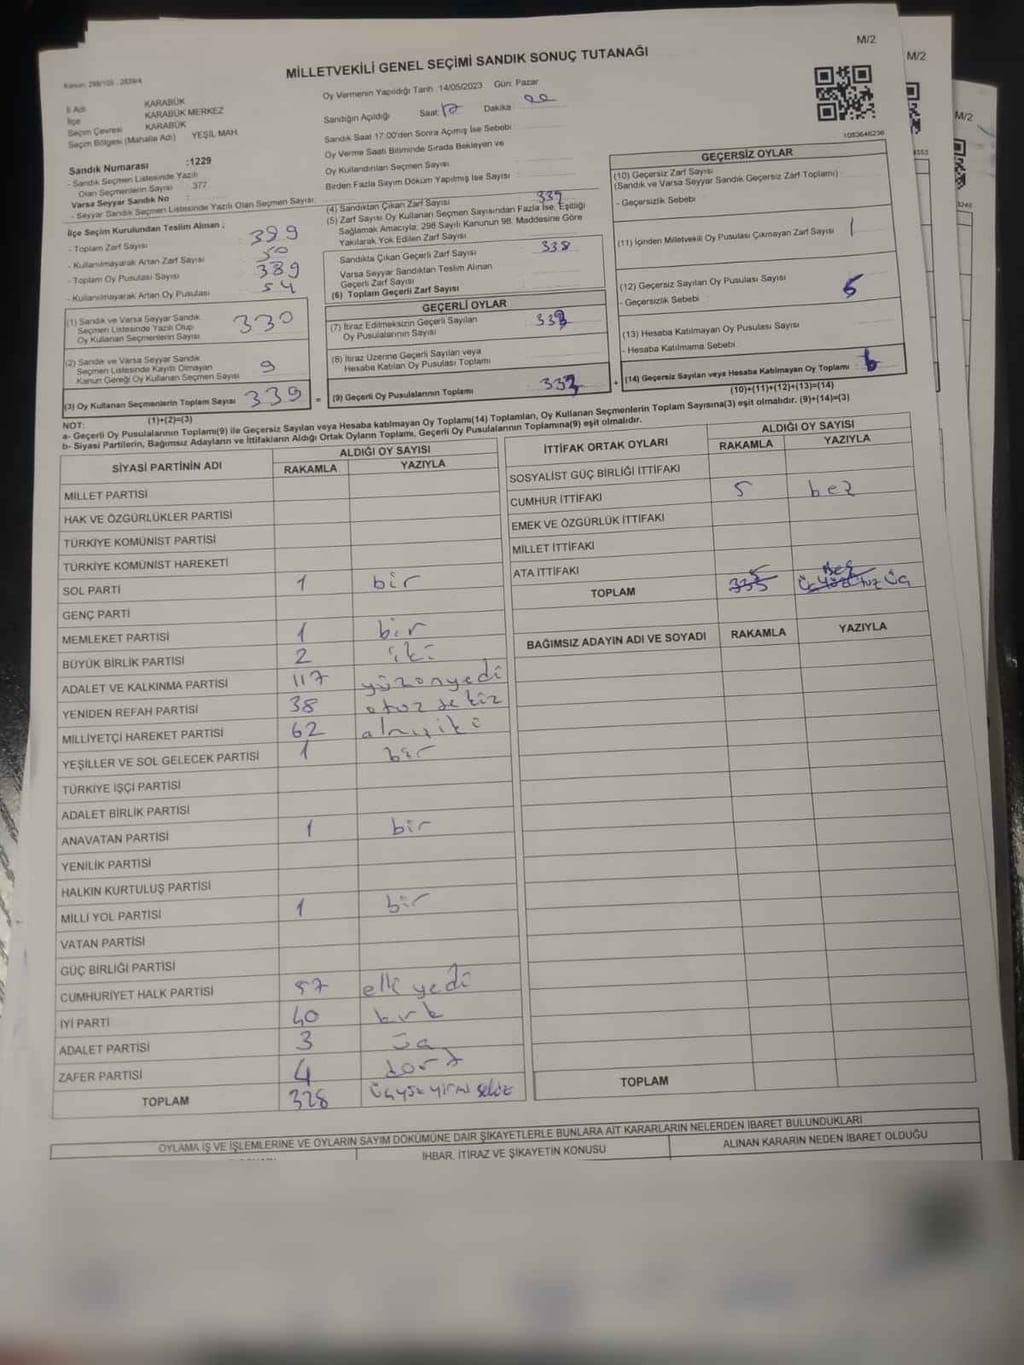 M/2
M/2
M/2
MİLLETVEKİLİ GENEL SEÇİMİ SANDIK SONUÇ TUTANAĞI
İl Adı KARABÜK
İlçe KARABÜK MERKEZ
Seçim Çevresi KARABÜK
Seçim Bölgesi (Mahalle Adı) YEŞİL MAH
Sandık Numarası :1229
- Sandık Seçmen Listesinde Yazılı
Olan Seçmenlerin Sayısı 377
Varsa Seyyar Sandık No :
- Seyyar Sandık Seçmen Listesinde Yazılı Olan Seçmen Sayısı:
İlçe Seçim Kurulundan Teslim Alınan ;
- Toplam Zarf Sayısı 399
- Kullanılmayarak Artan Zarf Sayısı
- Toplam Oy Pusulası Sayısı 389
- Kullanılmayarak Artan Oy Pusulası 54
(1) Sandık ve Varsa Seyyar Sandık
Seçmen Listesinde Yazılı Olup
Oy Kullanan Seçmenlerin Sayısı 330
(2) Sandık ve Varsa Seyyar Sandık
Seçmen Listesinde Kayıtlı Olmayan
Kanun Gereği Oy Kullanan Seçmen Sayısı 9
(3) Oy Kullanan Seçmenlerin Toplam Sayısı 339 =
(1)+(2)=(3)
Oy Vermenin Yapıldığı Tarih :14/05/2023 Gün: Pazar
Sandığın Açıldığı Saat: 17 Dakika : 00
Sandık Saat 17:00'den Sonra Açılmış İse Sebebi :
Oy Verme Saati Bitiminde Sırada Bekleyen ve
Oy Kullandırılan Seçmen Sayısı :
Birden Fazla Sayım Döküm Yapılmış İse Sayısı :
(4) Sandıktan Çıkan Zarf Sayısı 339
(5) Zarf Sayısı Oy Kullanan Seçmen Sayısından Fazla İse, Eşitliği
Sağlamak Amacıyla; 298 Sayılı Kanunun 98. Maddesine Göre
Yakılarak Yok Edilen Zarf Sayısı
Sandıkta Çıkan Geçerli Zarf Sayısı 338
Varsa Seyyar Sandıktan Teslim Alınan
Geçerli Zarf Sayısı
(6) Toplam Geçerli Zarf Sayısı
GEÇERLİ OYLAR
(7) İtiraz Edilmeksizin Geçerli Sayılan
Oy Pusulalarının Sayısı 333
(8) İtiraz Üzerine Geçerli Sayılan veya
Hesaba Katılan Oy Pusulası Toplamı
(9) Geçerli Oy Pusulalarının Toplamı 333 +
1083648236
GEÇERSİZ OYLAR
(10) Geçersiz Zarf Sayısı
(Sandık ve Varsa Seyyar Sandık Geçersiz Zarf Toplamı)
- Geçersizlik Sebebi :
(11) İçinden Milletvekili Oy Pusulası Çıkmayan Zarf Sayısı 1
(12) Geçersiz Sayılan Oy Pusulası Sayısı 5
- Geçersizlik Sebebi :
(13) Hesaba Katılmayan Oy Pusulası Sayısı
- Hesaba Katılmama Sebebi :
(14) Geçersiz Sayılan veya Hesaba Katılmayan Oy Toplamı 6
(10)+(11)+(12)+(13)=(14)
NOT:
a- Geçerli Oy Pusulalarının Toplamı(9) ile Geçersiz Sayılan veya Hesaba katılmayan Oy Toplamı(14) Toplamları, Oy Kullanan Seçmenlerin Toplam Sayısına(3) eşit olmalıdır. (9)+(14)=(3)
b- Siyasi Partilerin, Bağımsız Adayların ve İttifakların Aldığı Ortak Oyların Toplamı, Geçerli Oy Pusulalarının Toplamına(9) eşit olmalıdır.
SİYASİ PARTİNİN ADI ALDIĞI OY SAYISI
RAKAMLA YAZIYLA
MİLLET PARTİSİ
HAK VE ÖZGÜRLÜKLER PARTİSİ
TÜRKİYE KOMÜNİST PARTİSİ
TÜRKİYE KOMÜNİST HAREKETİ
SOL PARTİ 1 bir
GENÇ PARTİ
MEMLEKET PARTİSİ 1 bir
BÜYÜK BİRLİK PARTİSİ 2 iki
ADALET VE KALKINMA PARTİSİ 117 yüzonyedi
YENİDEN REFAH PARTİSİ 38 otuz sekiz
MİLLİYETÇİ HAREKET PARTİSİ 62 altmışiki
YEŞİLLER VE SOL GELECEK PARTİSİ 1 bir
TÜRKİYE İŞÇİ PARTİSİ
ADALET BİRLİK PARTİSİ
ANAVATAN PARTİSİ 1 bir
YENİLİK PARTİSİ
HALKIN KURTULUŞ PARTİSİ
MİLLİ YOL PARTİSİ 1 bir
VATAN PARTİSİ
GÜÇ BİRLİĞİ PARTİSİ
CUMHURİYET HALK PARTİSİ 57 elli yedi
İYİ PARTİ 40 kırk
ADALET PARTİSİ 3 üç
ZAFER PARTİSİ 4 dört
TOPLAM 328 üçyüz yirmi sekiz
İTTİFAK ORTAK OYLARI ALDIĞI OY SAYISI
RAKAMLA YAZIYLA
SOSYALİST GÜÇ BİRLİĞİ İTTİFAKI
CUMHUR İTTİFAKI 5 beş
EMEK VE ÖZGÜRLÜK İTTİFAKI
MİLLET İTTİFAKI
ATA İTTİFAKI
TOPLAM 5 Beş
BAĞIMSIZ ADAYIN ADI VE SOYADI RAKAMLA YAZIYLA
TOPLAM
OYLAMA İŞ VE İŞLEMLERİNE VE OYLARIN SAYIM DÖKÜMÜNE DAİR ŞİKAYETLERLE BUNLARA AİT KARARLARIN NELERDEN İBARET BULUNDUKLARI
İHBAR, İTİRAZ VE ŞİKAYETİN KONUSU
ALINAN KARARIN NEDEN İBARET OLDUĞU